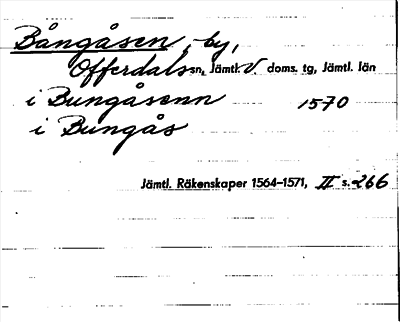 Bångåsen, by,
Offerdals sn, Jämtl. V. doms. tg, Jämtl. län
i Bungåsenn 1570
i Bungås
Jämtl. Räkenskaper 1564–1571, II s. 266